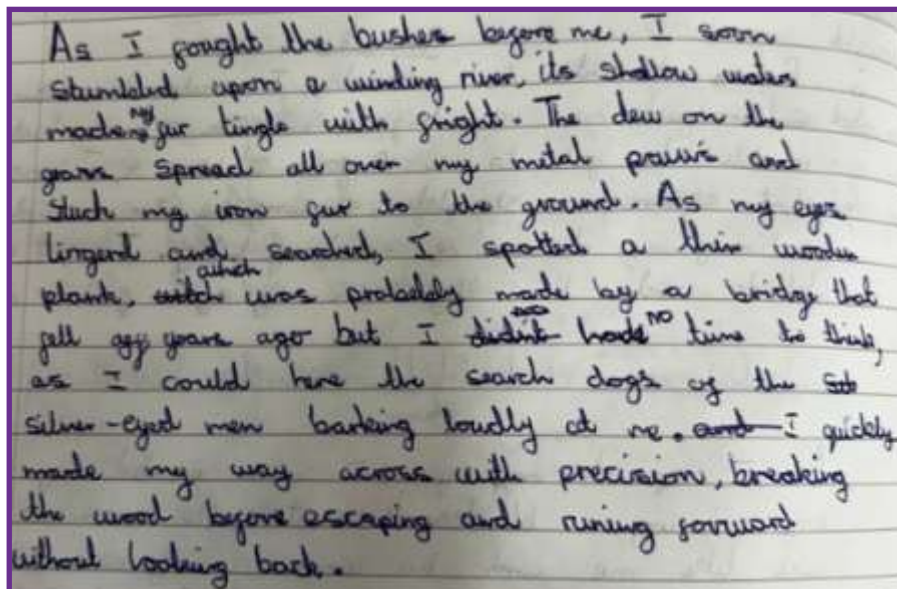 As I fought the bushes before me, I soon
stumbled upon a winding river, its shallow water
made my fur tingle with fright. The dew on the
grass spread all over my metal paws and
stuck my iron fur to the ground. As my eyes
lingerd and searched, I spotted a thin wooden
plank, which was probably made by a bridge that
fell years ago but I had no time to think,
as I could here the search dogs of the
silver-eyed men barking loudly at me. I quickly
made my way across with precision, breaking
the wood before escaping and runing forward
without looking back.